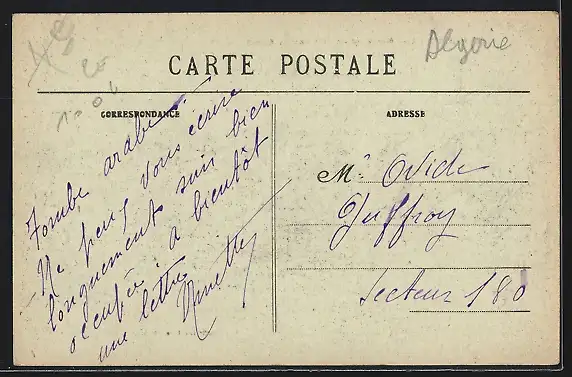 Algerie
CARTE POSTALE
CORRESPONDANCE
ADRESSE
Tombe arabe.
Ne peux vous écrire
longuement suis bien
occupée, a bientôt
une lettre
Ninette
Mr Ovide
Juffroy
Secteur 180